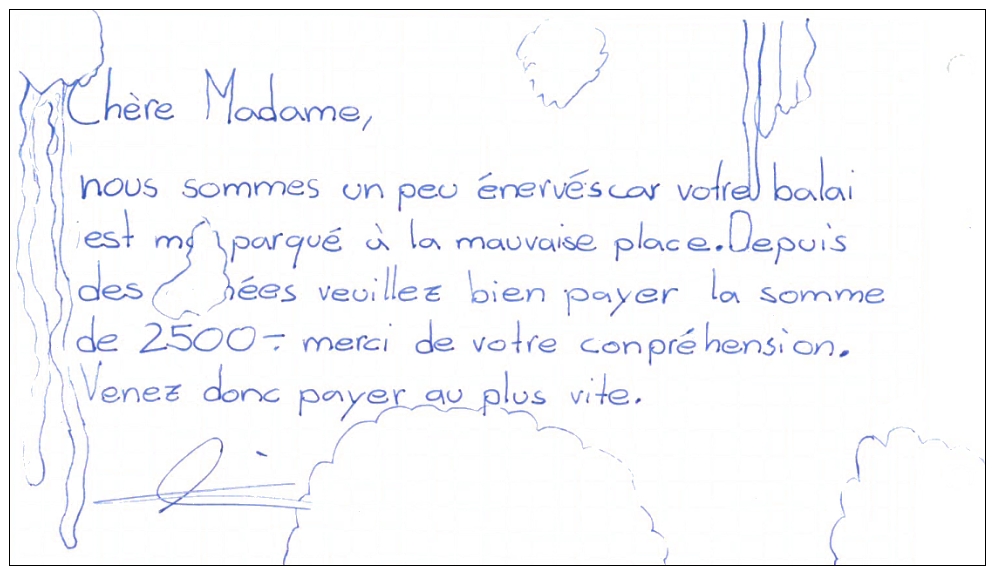 Chère Madame,
nous sommes un peu énervés car votre balai
est parqué à la mauvaise place. Depuis
des veuillez bien payer la somme
de 2500.- merci de votre conpréhension.
Venez donc payer au plus vite.